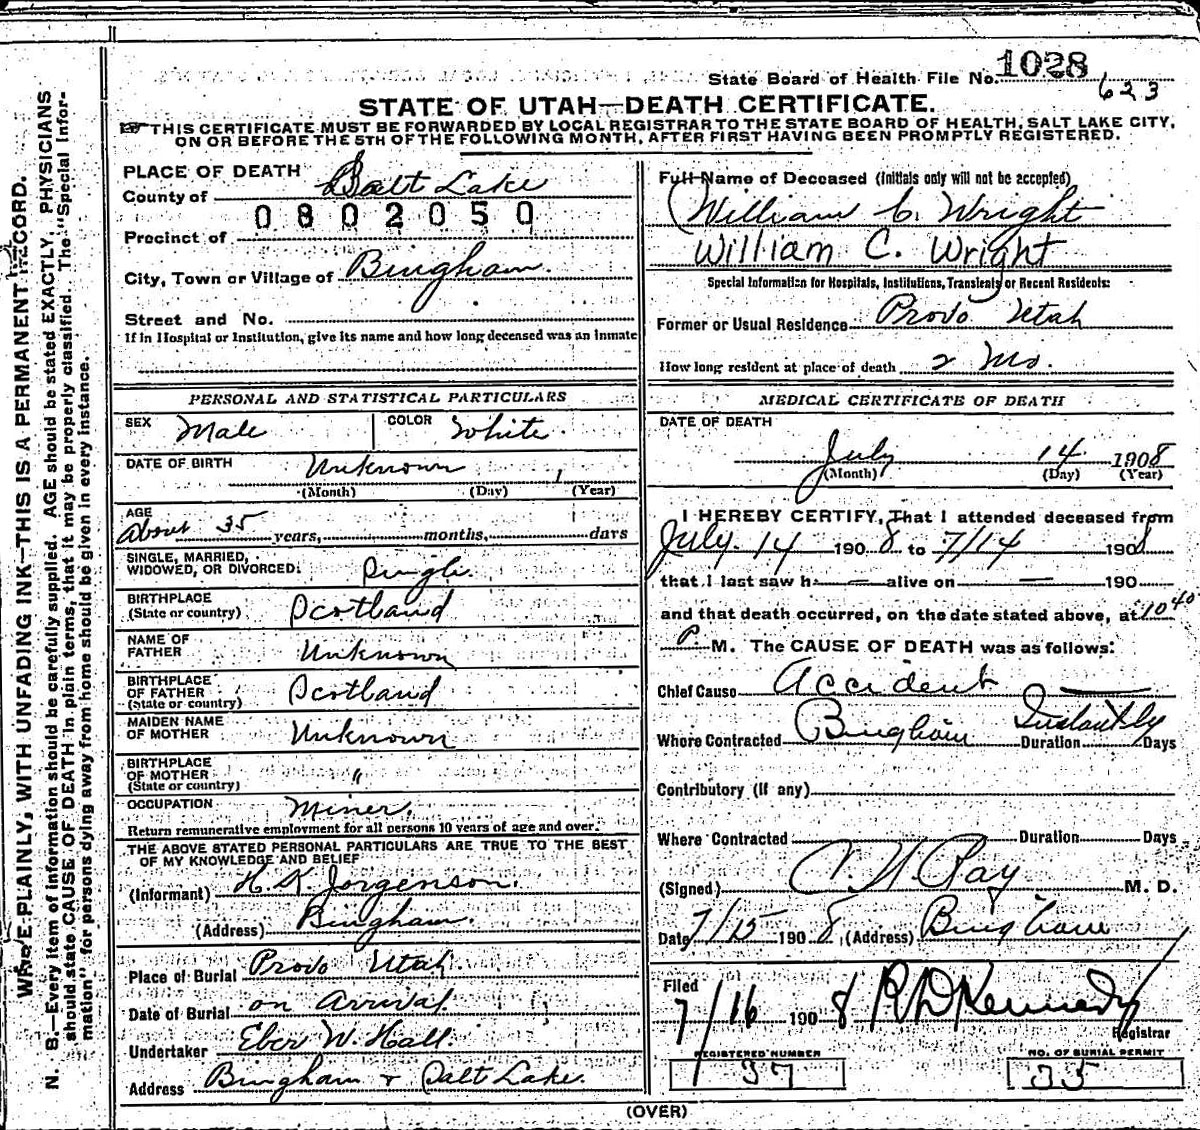 State Board of Health File No. 1028
623
STATE OF UTAH—DEATH CERTIFICATE.
THIS CERTIFICATE MUST BE FORWARDED BY LOCAL REGISTRAR TO THE STATE BOARD OF HEALTH, SALT LAKE CITY,
ON OR BEFORE THE 5TH OF THE FOLLOWING MONTH, AFTER FIRST HAVING BEEN PROMPTLY REGISTERED.
PLACE OF DEATH
County of Salt Lake
0802050
Precinct of
City, Town or Village of Bingham.
Street and No.
If in Hospital or Institution, give its name and how long deceased was an inmate
PERSONAL AND STATISTICAL PARTICULARS
SEX Male COLOR White.
DATE OF BIRTH Unknown
(Month) (Day) (Year)
AGE
About 35 years, months, days
SINGLE, MARRIED,
WIDOWED, OR DIVORCED: Single
BIRTHPLACE
(State or country) Scotland
NAME OF
FATHER Unknown
BIRTHPLACE
OF FATHER Scotland
(State or country)
MAIDEN NAME
OF MOTHER Unknown
BIRTHPLACE
OF MOTHER "
(State or country)
OCCUPATION Miner.
Return remunerative employment for all persons 10 years of age and over.
THE ABOVE STATED PERSONAL PARTICULARS ARE TRUE TO THE BEST
OF MY KNOWLEDGE AND BELIEF
(Informant) H. K. Jorgenson.
(Address) Bingham.
Place of Burial Provo Utah.
Date of Burial on Arrival.
Undertaker Eber W. Hall.
Address Bingham & Salt Lake.
Full Name of Deceased (Initials only will not be accepted)
William C. Wright
William C. Wright
Special Information for Hospitals, Institutions, Transients or Recent Residents:
Former or Usual Residence Provo Utah
How long resident at place of death 2 Mo.
MEDICAL CERTIFICATE OF DEATH
DATE OF DEATH
July 14 1908
(Month) (Day) (Year)
I HEREBY CERTIFY, That I attended deceased from
July. 14 1908 to 7/14 1908
that I last saw h — alive on — 190
and that death occurred, on the date stated above, at 10 40
P. M. The CAUSE OF DEATH was as follows:
Chief Cause Accident
Where Contracted Bingham Duration Instantly Days
Contributory (If any)
Where Contracted Duration Days
(Signed) C. N. Ray M. D.
Date 7/15 1908, (Address) Bingham
Filed
7/16 1908 R D Kennedy
Registrar
REGISTERED NUMBER
37
NO. OF BURIAL PERMIT
35
(OVER)
WRITE PLAINLY, WITH UNFADING INK—THIS IS A PERMANENT RECORD.
N. B.—Every item of information should be carefully supplied. AGE should be stated EXACTLY. PHYSICIANS
should state CAUSE OF DEATH in plain terms, that it may be properly classified. The "Special Infor-
mation" for persons dying away from home should be given in every instance.